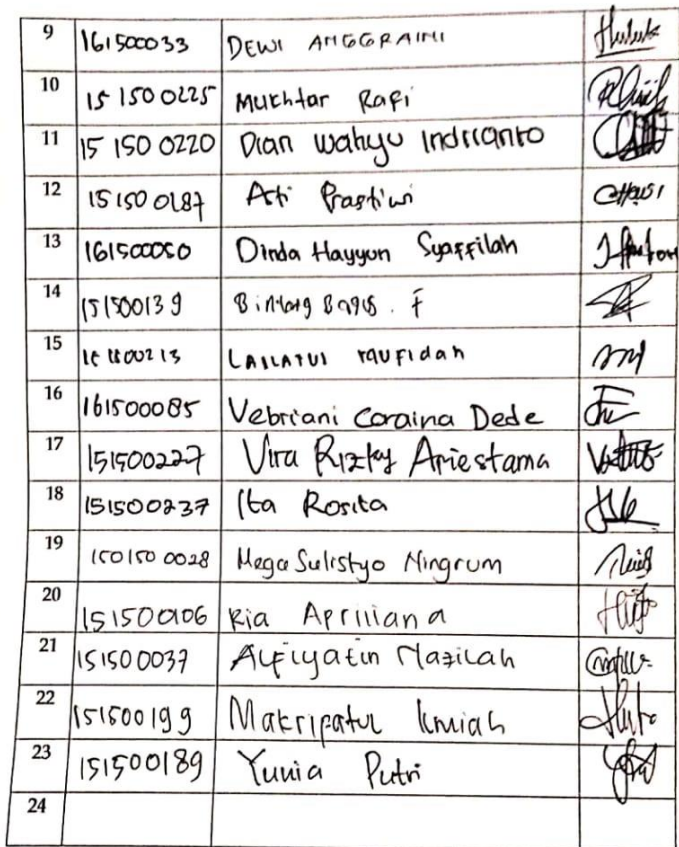 9 161500033 DEWI ANGGRAINI
10 15 1500225 Mukhtar Rafi
11 15 150 0220 Dian Wahyu Indrianto
12 15 150 0187 Asti Prastiwi
13 161500050 Dinda Hayyun Syaffilah
14 151500139 Bintang Bagus . F
15 LAILATUL MUFIDAH
16 161500085 Vebriani Coraina Dede
17 151500227 Vira Rizky Ariestama
18 151500237 Ita Rosita
19 150150 0028 Mega Sulistyo Ningrum
20 151500106 Ria Apriliana
21 151500037 Alfiyatin Nazilah
22 151500199 Makrifatul Ilmiah
23 151500189 Yunia Putri
24